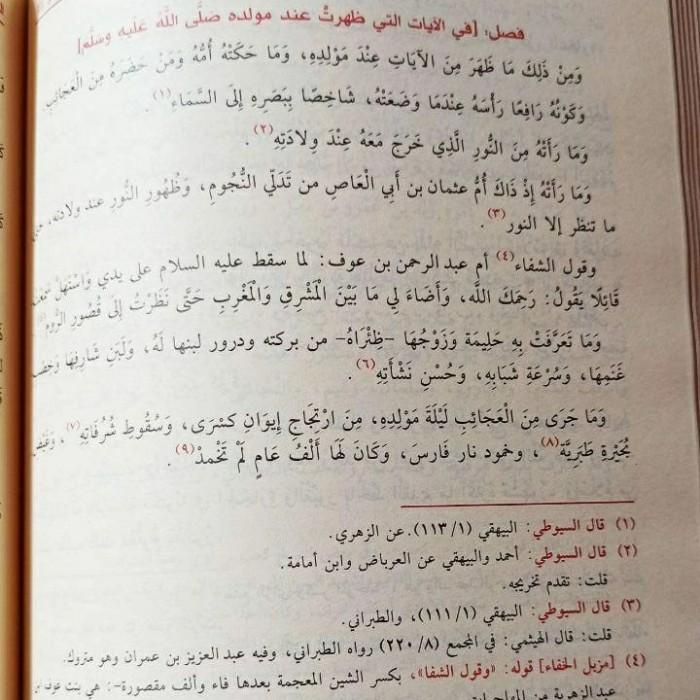 فصل: [في الآيات التي ظهرتْ عند مولده صَلَّى اللَّهُ عَلَيه وسَلَّم]
وَمِنْ ذَلِكَ مَا ظَهَرَ مِنَ الآيَاتِ عِنْدَ مَوْلِدِهِ، وَمَا حَكَتْهُ أُمُّهُ وَمَنْ حَضَرَهُ مِنَ الْعَجَائِبِ
وَكَوْنُهُ رَافِعًا رَأْسَهُ عِنْدَمَا وَضَعَتْهُ، شَاخِصًا بِبَصَرِهِ إِلَى السَّمَاءِ(١).
وَمَا رَأَتْهُ مِنَ النُّورِ الَّذِي خَرَجَ مَعَهُ عِنْدَ وِلَادَتِهِ(٢).
وَمَا رَأَتْهُ إِذْ ذَاكَ أُمُّ عثمان بن أَبي الْعَاصِ من تَدَلّي النُّجُومِ، وَظُهُورِ النُّورِ عند ولادته،
ما تنظر إلا النور(٣).
وقول الشفاء(٤) أم عبد الرحمن بن عوف: لما سقط عليه السلام على يدي وَاسْتَهَلَّ
قَائِلًا يَقُولُ: رَحِمَكَ الله، وَأَضَاءَ لِي مَا بَيْنَ الْمَشْرِقِ وَالْمَغْرِبِ حَتَّى نَظَرْتُ إِلَى قُصُورِ الرُّومِ
وَمَا تَعَرَّفَتْ بِهِ حَلِيمَة وَزَوْجُهَا -ظِئْرَاهُ- من بركته ودرور لبنها لَهُ، وَلَبَنِ شَارِفِهَا
غَنَمِهَا، وَسُرْعَةِ شَبَابِهِ، وَحُسْنِ نَشْأَتِهِ(٦).
وَمَا جَرَى مِنَ الْعَجَائِبِ لَيْلَةَ مَوْلِدِهِ، مِنَ ارْتِجَاجِ إِيوَانِ كِسْرَى، وَسُقُوطِ شُرُفَاتِهِ(٧)،
بُحَيْرَةِ طَبَرِيَّة(٨)، وخمود نار فَارِسَ، وَكَانَ لَهَا أَلْفُ عَامٍ لَمْ تَخْمدْ(٩).
(١) قال السيوطي: البيهقي (١/١١٣). عن الزهري.
(٢) قال السيوطي: أحمد والبيهقي عن العرباض وابن أمامة.
قلت: تقدم تخريجه.
(٣) قال السيوطي: البيهقي (١/١١١)، والطبراني.
قلت: قال الهيثمي: في المجمع (٨/٢٢٠) رواه الطبراني، وفيه عبد العزيز بن عمران وهو متروك.
(٤) [مزيل الخفاء] قوله: «وقول الشفا»، بكسر الشين المعجمة بعدها فاء وألف مقصورة-: هي بنت عوف